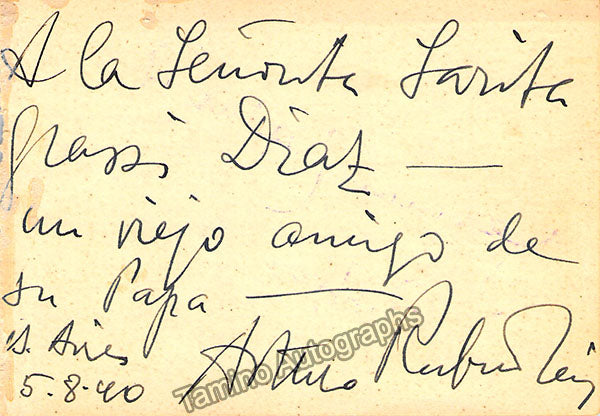 A la Señorita Sarita
Grassi Diaz —
un viejo amigo de
su Papa —
B. Aires
5.8.40
Arturo Rubinstein
Tamino Autographs